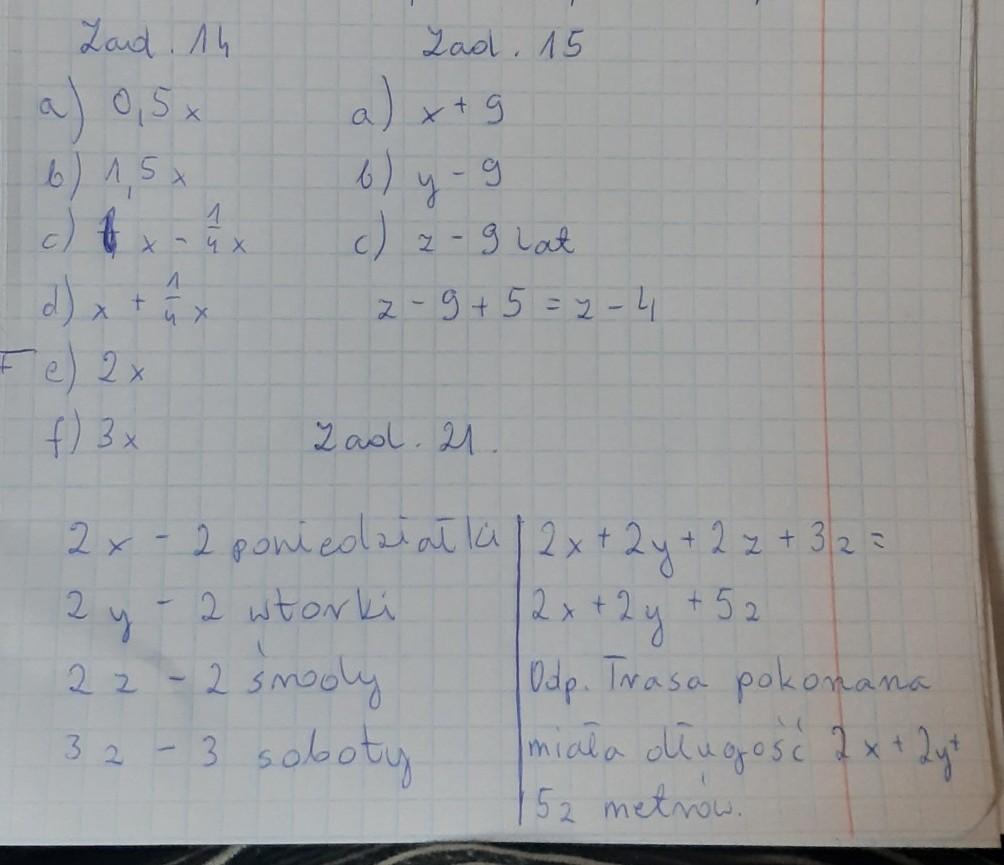 Zad. 14
a) 0,5x
b) 1,5x
c) x - 1/4 x
d) x + 1/4 x
e) 2x
f) 3x
Zad. 15
a) x + 9
b) y - 9
c) z - 9 lat
z - 9 + 5 = z - 4
Zad. 21.
2x - 2 poniedziałki
2y - 2 wtorki
2z - 2 środy
3z - 3 soboty
2x + 2y + 2z + 3z =
2x + 2y + 5z
Odp. Trasa pokonana
miała długość 2x + 2y +
5z metrów.